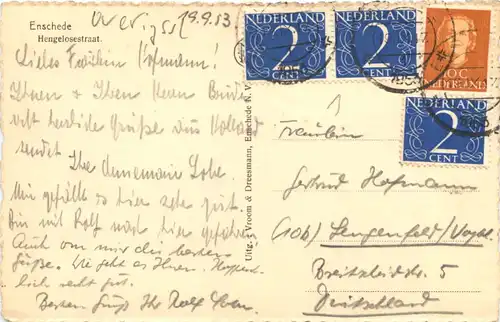 Enschede
Hengelosestraat.
19.9.53
Liebes Fräulein Hofmann!
Ihnen & Ihrem Herrn Bruder
viele herzliche Grüße aus Holland
sendet Ihre Annemarie
Mir gefällt es hier sehr gut.
Bin mit Rolf nach hier gefahren
Auch von mir die besten
Grüße. Wie geht es Ihnen. Hoffent-
lich recht gut.
Besten Gruß Ihr Rolf
Uitg. Vroom & Dreesmann, Enschede N.V.
NEDERLAND
2
CENT
NEDERLAND
2
CENT
10C
NEDERLAND
NEDERLAND
2
CENT
Fräulein
Gertrud Hofmann
(10b) Lengenfeld/Vogtl.
5
Deutschland